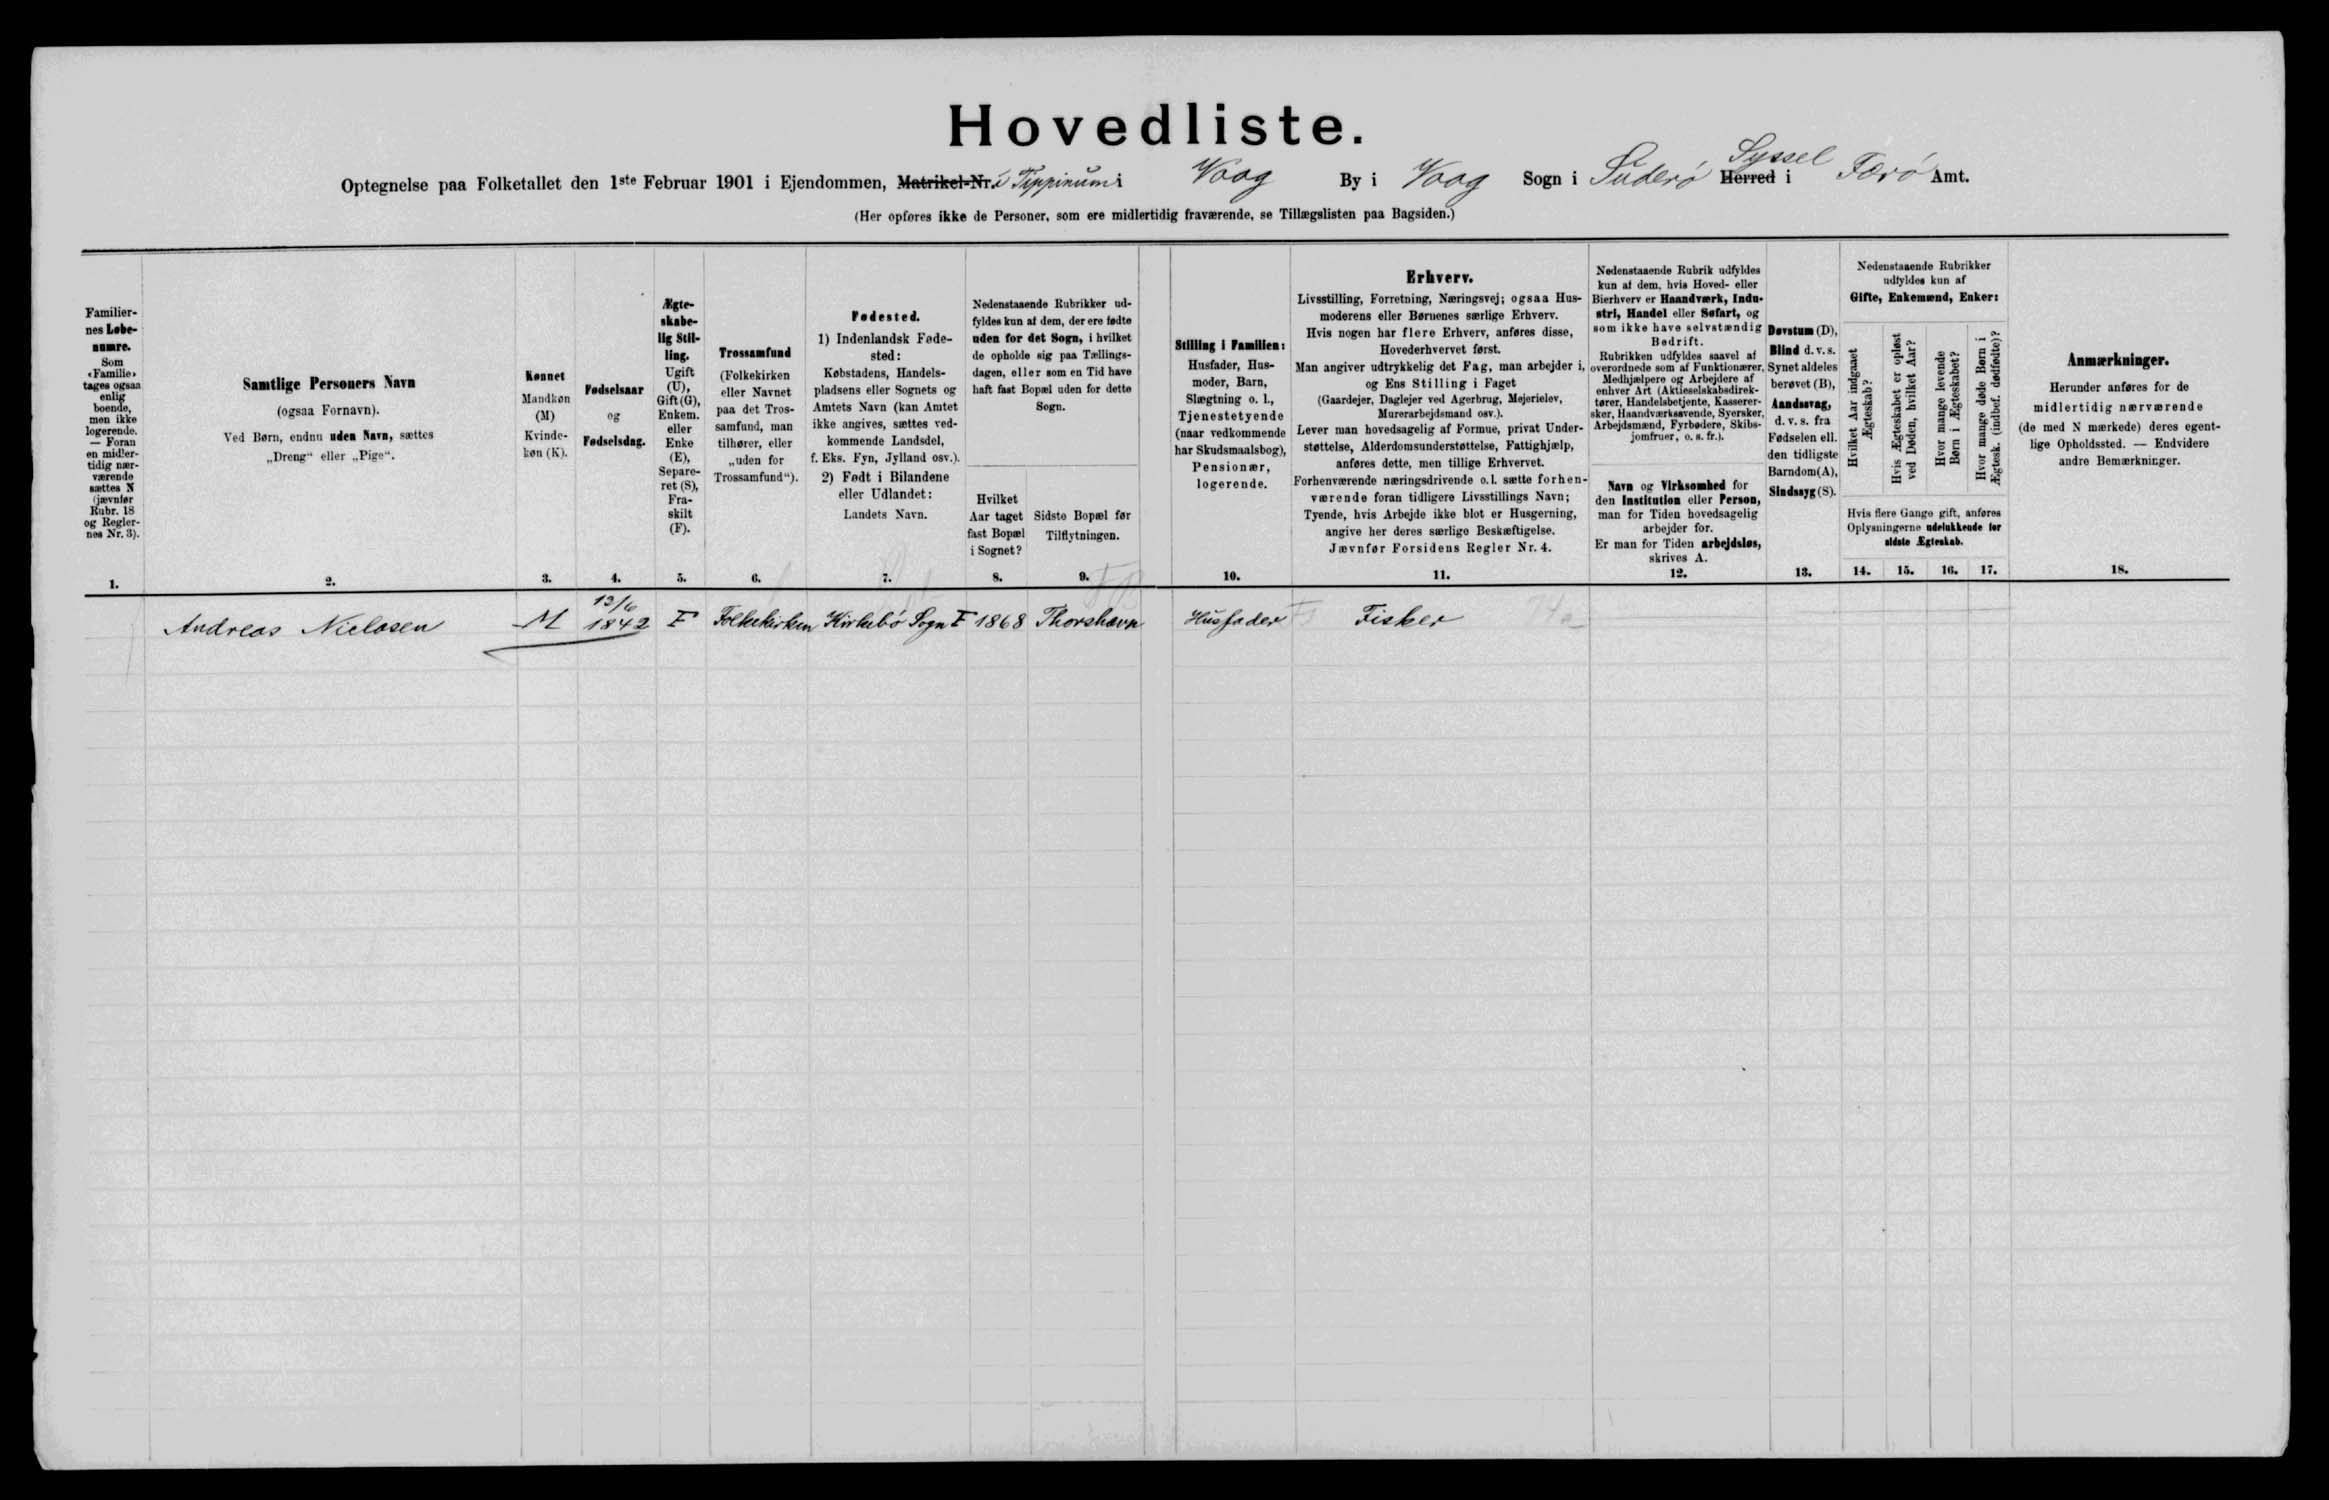 Hovedliste.
Optegnelse paa Folketallet den 1ste Februar 1901 i Ejendommen, Matrikel-Nr. i Tippinum i Vaag By i Vaag Sogn i Suderø Herred Syssel i Færø Amt.
(Her opføres ikke de Personer, som ere midlertidig fraværende, se Tillægslisten paa Bagsiden.)
Familier-
nes Løbe-
numre.
Som
«Familie»
tages ogsaa
enlig
boende,
men ikke
logerende.
— Foran
en midler-
tidig nær-
værende
sættes N
(jævnfør
Rubr. 18
og Regler-
nes Nr. 3).
1.
Samtlige Personers Navn
(ogsaa Fornavn).
Ved Børn, endnu uden Navn, sættes
„Dreng“ eller „Pige“.
2.
Kønnet
Mandkøn
(M)
Kvinde-
køn (K).
3.
Fødselsaar
og
Fødselsdag.
4.
Ægte-
skabe-
lig Stil-
ling.
Ugift
(U),
Gift (G),
Enkem.
eller
Enke
(E),
Separe-
ret (S),
Fra-
skilt
(F).
5.
Trossamfund
(Folkekirken
eller Navnet
paa det Tros-
samfund, man
tilhører, eller
„uden for
Trossamfund“).
6.
Fødested.
1) Indenlandsk Føde-
sted:
Købstadens, Handels-
pladsens eller Sognets og
Amtets Navn (kan Amtet
ikke angives, sættes ved-
kommende Landsdel,
f. Eks. Fyn, Jylland osv.).
2) Født i Bilandene
eller Udlandet:
Landets Navn.
7.
Nedenstaaende Rubrikker ud-
fyldes kun af dem, der ere fødte
uden for det Sogn, i hvilket
de opholde sig paa Tællings-
dagen, eller som en Tid have
haft fast Bopæl uden for dette
Sogn.
Hvilket
Aar taget
fast Bopæl
i Sognet?
8.
Sidste Bopæl før
Tilflytningen.
9.
Stilling i Familien:
Husfader, Hus-
moder, Barn,
Slægtning o. l.,
Tjenestetyende
(naar vedkommende
har Skudsmaalsbog),
Pensionær,
logerende.
10.
Erhverv.
Livsstilling, Forretning, Næringsvej; ogsaa Hus-
moderens eller Børnenes særlige Erhverv.
Hvis nogen har flere Erhverv, anføres disse,
Hovederhvervet først.
Man angiver udtrykkelig det Fag, man arbejder i,
og Ens Stilling i Faget
(Gaardejer, Daglejer ved Agerbrug, Mejerielev,
Murerarbejdsmand osv.).
Lever man hovedsagelig af Formue, privat Under-
støttelse, Alderdomsunderstøttelse, Fattighjælp,
anføres dette, men tillige Erhvervet.
Forhenværende næringsdrivende o. l. sætte forhen-
værende foran tidligere Livsstillings Navn;
Tyende, hvis Arbejde ikke blot er Husgerning,
angive her deres særlige Beskæftigelse.
Jævnfør Forsidens Regler Nr. 4.
11.
Nedenstaaende Rubrik udfyldes
kun af dem, hvis Hoved- eller
Bierhverv er Haandværk, Indu-
stri, Handel eller Søfart, og
som ikke have selvstændig
Bedrift.
Rubrikken udfyldes saavel af
overordnede som af Funktionærer,
Medhjælpere og Arbejdere af
enhver Art (Aktieselskabsdirek-
tører, Handelsbetjente, Kasserer-
sker, Haandværkssvende, Syersker,
Arbejdsmænd, Fyrbødere, Skibs-
jomfruer, o. s. fr.).
Navn og Virksomhed for
den Institution eller Person,
man for Tiden hovedsagelig
arbejder for.
Er man for Tiden arbejdsløs,
skrives A.
12.
Døvstum (D),
Blind d. v. s.
Synet aldeles
berøvet (B),
Aandssvag,
d. v. s. fra
Fødselen ell.
den tidligste
Barndom (A),
Sindssyg (S).
13.
Nedenstaaende Rubrikker
udfyldes kun af
Gifte, Enkemænd, Enker:
Hvilket Aar indgaaet
Ægteskab?
Hvis Ægteskabet er opløst
ved Døden, hvilket Aar?
Hvor mange levende
Børn i Ægteskabet?
Hvor mange døde Børn i
Ægtesk. (indbef. dødfødte)?
Hvis flere Gange gift, anføres
Oplysningerne udelukkende for
sidste Ægteskab.
14. 15. 16. 17.
Anmærkninger.
Herunder anføres for de
midlertidig nærværende
(de med N mærkede) deres egent-
lige Opholdssted. — Endvidere
andre Bemærkninger.
18.
Andreas Nielasen M 13/6 1842 F Folkekirken Kirkebø Sogn F 1868 Thorshavn Husfader Fisker